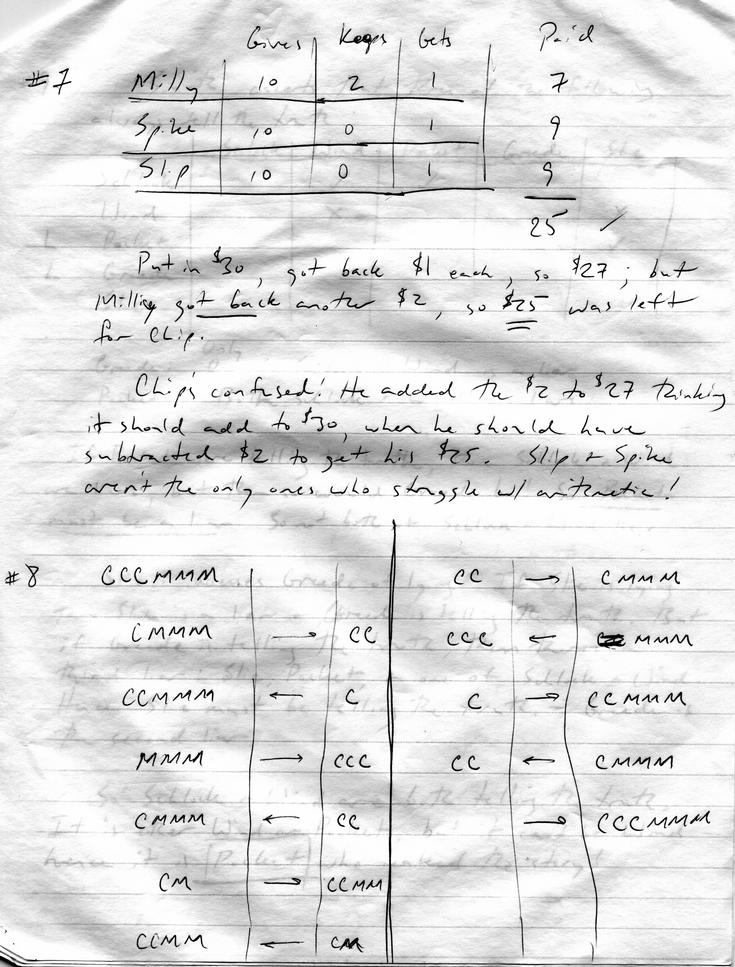 Gives Keeps Gets Paid
#7 Milly 10 2 1 7
Spike 10 0 1 9
Slip 10 0 1 9
25 ✓
Put in $30, got back $1 each, so $27; but
Milly got back another $2, so $25 was left
for Chip.
Chip's confused! He added the $2 to $27 thinking
it should add to $30, when he should have
subtracted $2 to get his $25. Slip + Spike
aren't the only ones who struggle w/ arithmetic!
#8 CCCMMM CC → CMMM
CMMM → CC CCC ← MMM
CCMMM ← C C → CCMMM
MMM → CCC CC ← CMMM
CMMM ← CC → CCCMMM
CM → CCMM
CCMM ← CM